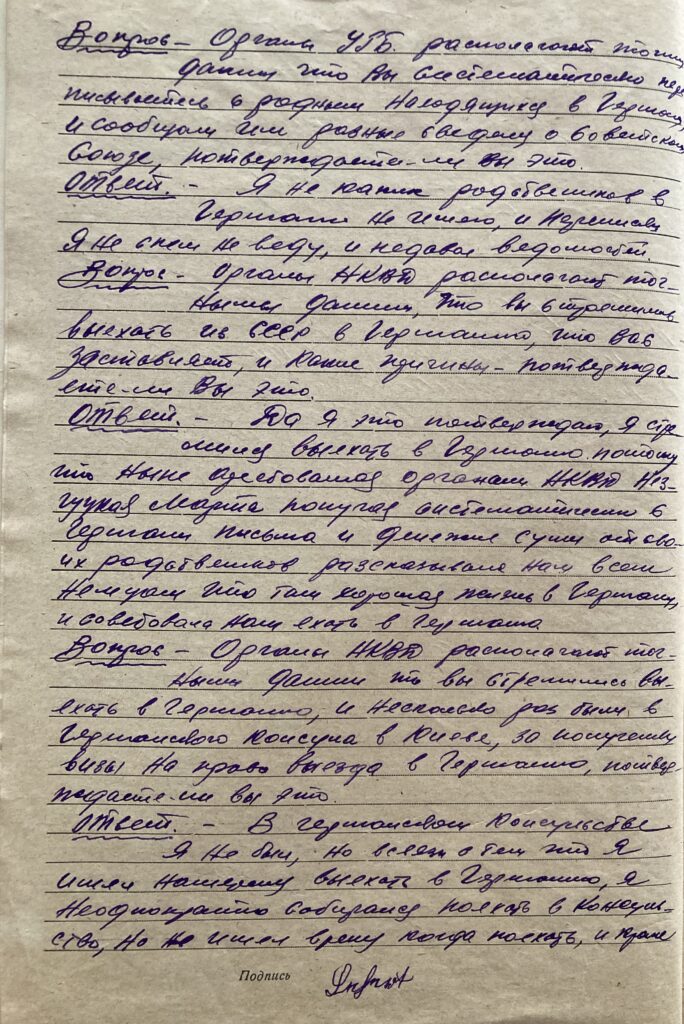 Вопрос – Органы УГБ. располагают точны
данми что Вы систематически пере
писываетесь с родными находящихся в Германии,
и сообщали им разные сведения о Советском
Союзе, потверждаете-ли вы это.
Ответ. – Я не каких родственников в
Германии не имею, и переписки
Я не с кем не веду, и недавал ведомостей.
Вопрос – Органы НКВД располагают точ-
ными данми, что вы стремились
выехать из СССР в Германию, что Вас
заставляет, и какие причины – потвержда-
ете-ли Вы это.
Ответ. – Да я это потверждаю, я стре
мился выехать в Германию потому
что ныне арестованая органами НКВД
Марта получая систематически с
Германии письма и денежные суммы от сво-
их родственников рассказывала нам всем
немцам что там хорошая жизнь в Германии,
и советовала нам ехать в Германию
Вопрос – Органы НКВД располагают точ-
ными данми что вы стремились вы-
ехать в Германию, и несколько раз были в
Германского консула в Киеве, за получением
визы на право выезда в Германию, потвер-
ждаете-ли вы это.
Ответ. – В германском консульстве
Я не был, но всвязи с тем что Я
имел намерение выехать в Германию, я
неоднократно собирался поехать в консуль-
ство, но не имел время когда поехать, и кроме
Подпись